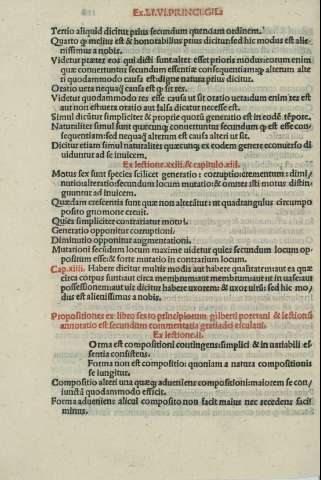 Ex.LI.VI.PRINCI.GI.LA
Tertio aliquid dicitur prius secundum quendam ordinem.
Quarto qƺ melius est & honorabilius prius dicitur: sed hic modus est alie-
nissimus a nobis.
Videtur præter eos qui dicti sunt alter esset prioris modus: eorum enim
quæ conuertuntur secundum essentiæ consequentiam: qƺ alterum alte
ri quodammodo causa est digne natura prius dicitur.
Oratio uera nequaq̃ causa est qƺ sit res.
Videtur quodammodo res esse causa ut sit oratio uera: dum enim res est
aut non est: uera oratio aut falsa dicatur necesse est.
Simul dicũtur simpliciter & proprie quorũ generatio est in eodẽ tẽpore.
Naturaliter simul sunt quæcunqƺ conuertuntur secundum qƺ est esse con-
sequentiam: sed nequaq̃ alterum est causa alteri ut sit.
Dicitur etiam simul naturaliter quæcunqƺ ex eodem genere econuerso di
uiduntur ad se inuicem.
Ex lectione.xxiii. & capitulo.xiii.
Motus sex sunt species scilicet generatio: corruptio: crementum: dimi/
nutio: alteratio: secundum locum mutatio & omnes isti motus distin-
guuntur ad inuicem.
Quædam crescentia sunt quæ non alterãtur: ut quadrangulus circumpo
posito gnomone creuit.
Quies simpliciter contrariatur motui.
Generatio opponitur corruptioni.
Diminutio opponitur augmentationi.
Mutationi secũdum locum maxime uidetur quies secundum locum op-
positum esse: & forte mutatio in contrarium locum.
Cap.xiiii. Habere dicitur multis modis aut habere qualitatem aut ea quæ
circa corpus sunt: aut circa membrum aut membrum aut ut in uase: aut
possessionem: aut uir dicitur habere uxorem: & uxor uirũ: sed hic mo/
dus est alienissimus a nobis.
Propositiones ex libro sex principiorum gilberti poretani & lectionũ
annotatio est secundum commentaria
Ex lectione.ii.
Orma est compositioni contingens: simplici & inuariabili es
sentia consistens.
Forma non est compositio: quoniam a natura compositionis
seiungitur.
Compositio alteri unaquæqƺ adueniens compositioni: maiorem se con/
iunctã quodammodo efficit.
Forma adueniens alicui composito non facit maius nec recedens faciẽ
minus.